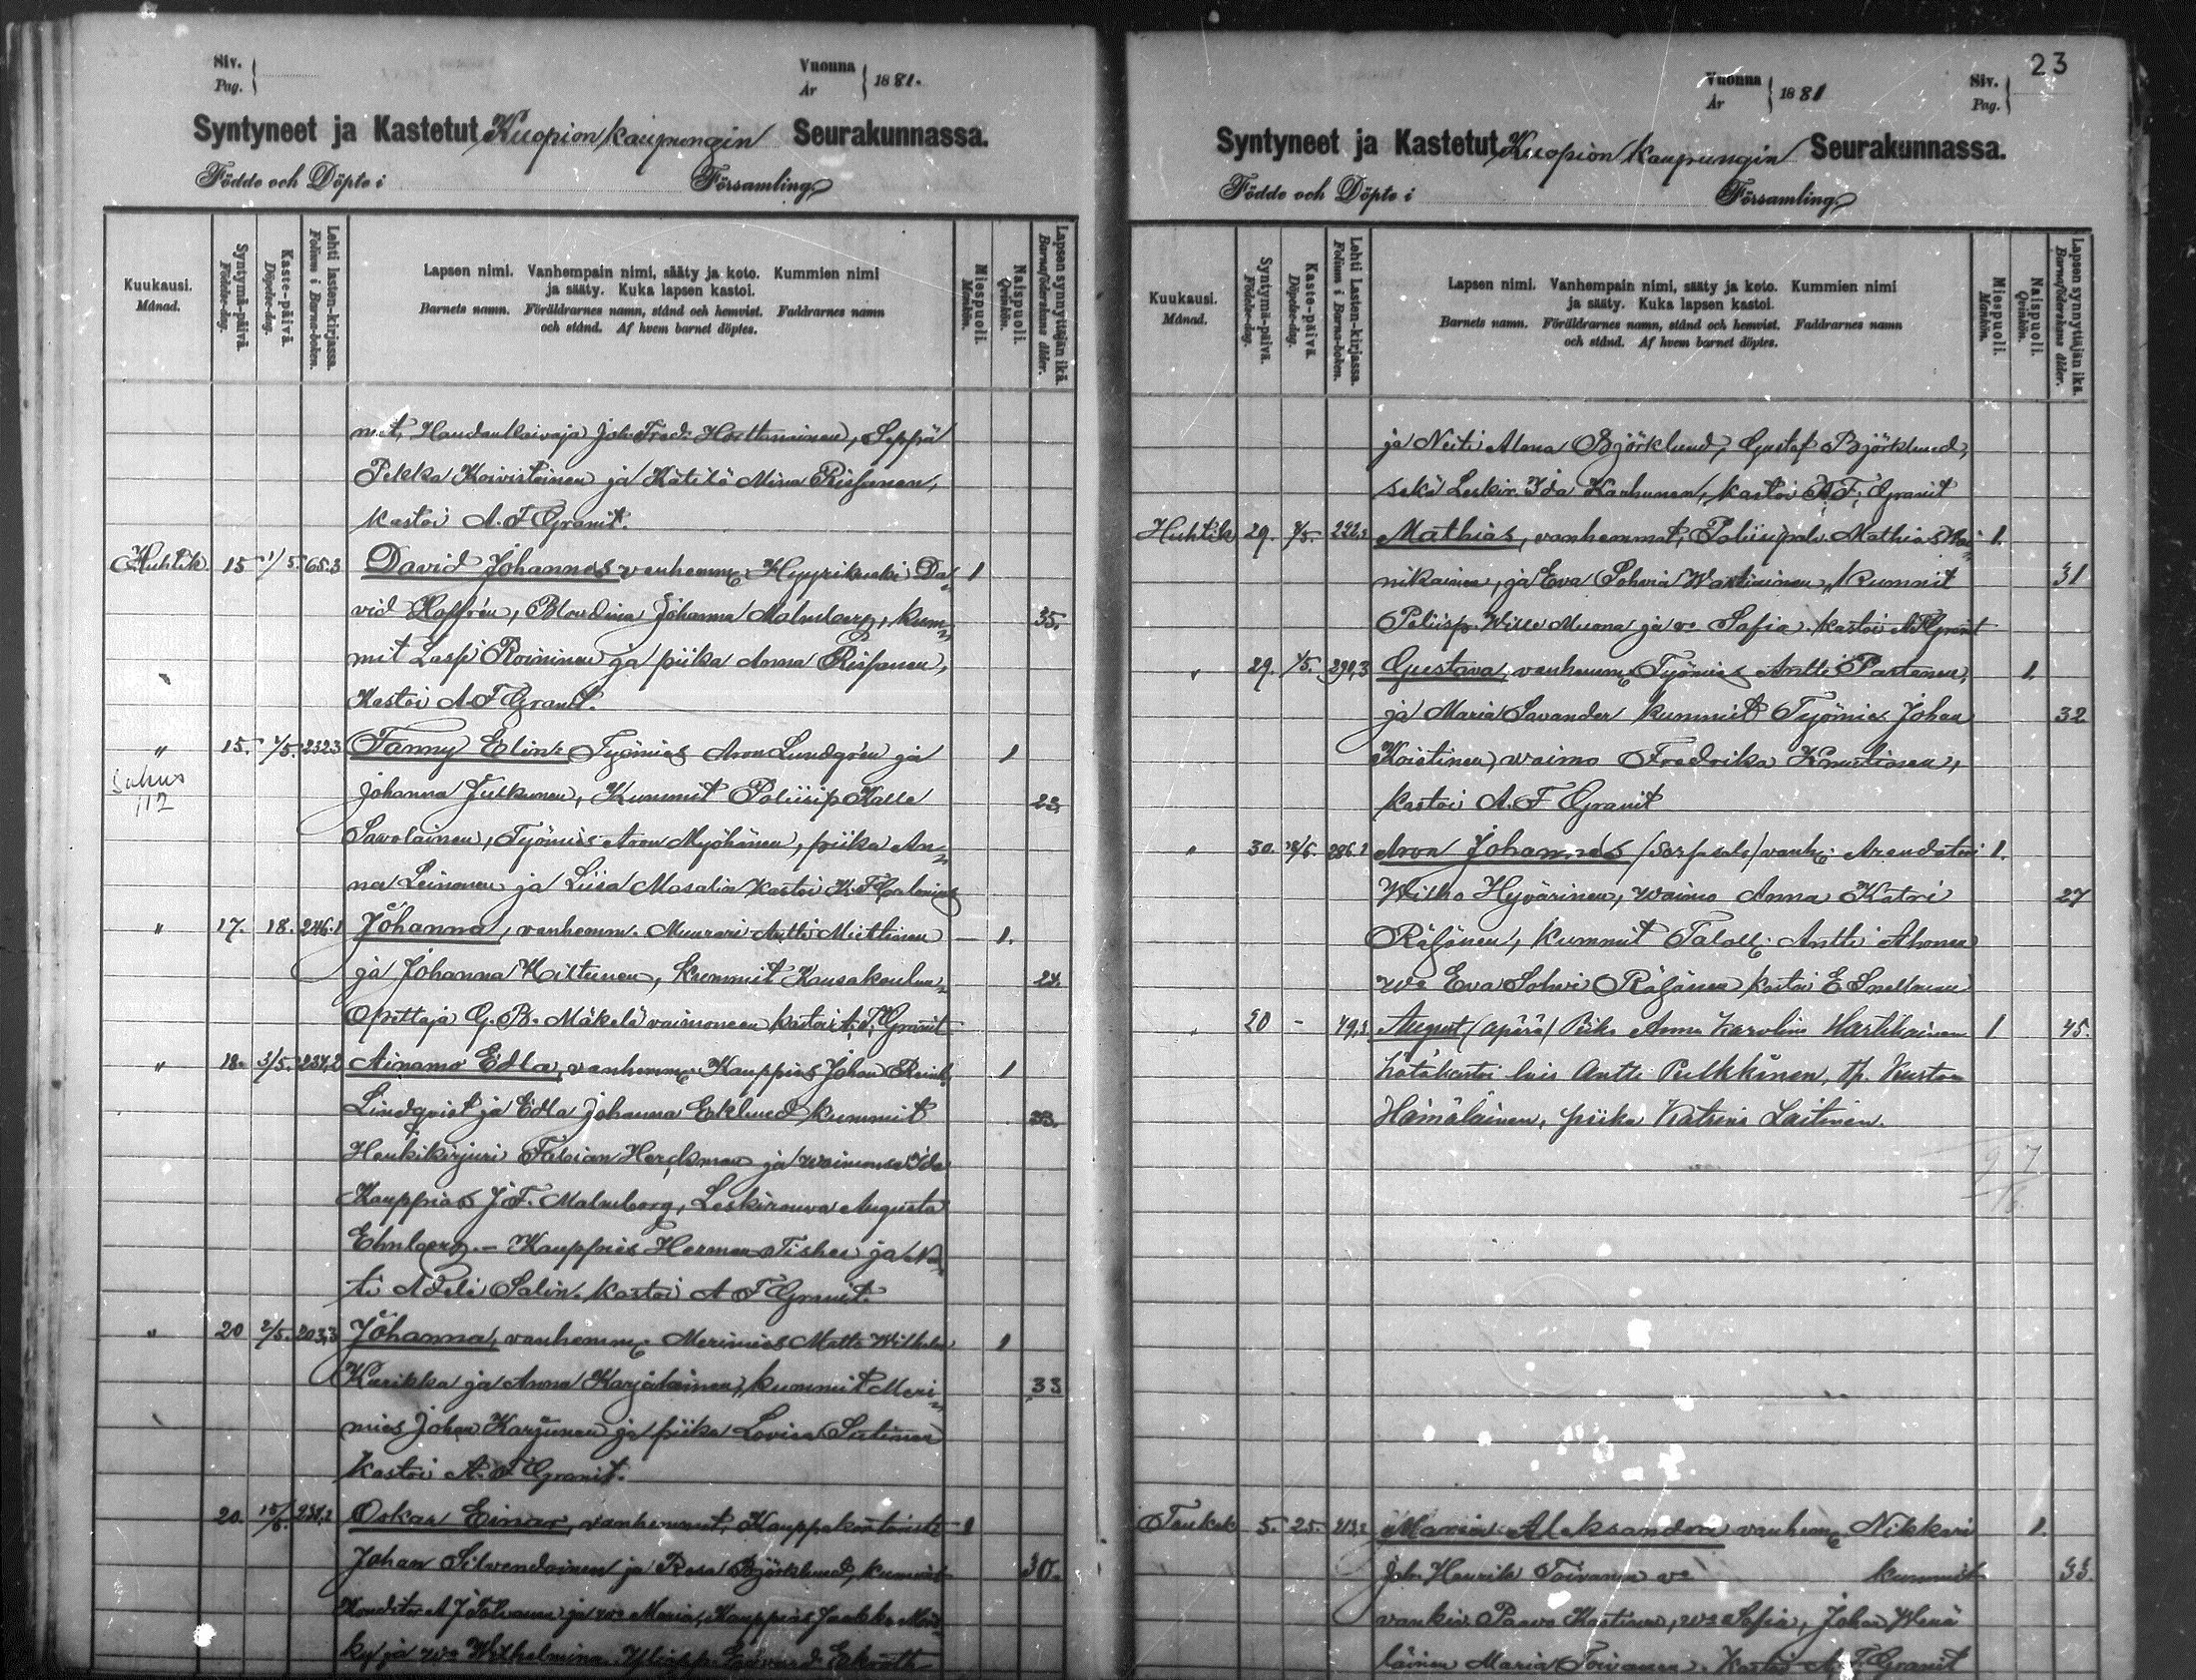 Siv.
Pag.
Vuonna
År
1881.
Syntyneet ja Kastetut Kuopion kaupungin Seurakunnassa.
Födde och Döpte i Församling
Kuukausi.
Månad.
Syntymä-päivä.
Födelse-dag.
Kaste-päivä.
Döpelse-dag.
Lehti lasten-kirjassa.
Folium i Barna-boken.
Lapsen nimi. Vanhempain nimi, sääty ja koto. Kummien nimi
ja sääty. Kuka lapsen kastoi.
Barnets namn. Föräldrarnes namn, stånd och hemvist. Faddrarnes namn
och stånd. Af hvem barnet döptes.
Miespuoli.
Mankön.
Naispuoli.
Qvinkön.
Lapsen synnyttäjän ikä.
Barnaföderskans ålder.
mit, Haudankaivaja Joh. Fred. Hottanainen, Seppä
Pekka Koivistoinen ja Kätilö Mina Rissanen,
kastoi A. F. Granit.
Huhtik. 15 1/5. 65.3 David Johannes vanhemm: Hyyrikuski Da- 1
vid Hoffrén, Blondina Johanna Malmberg, kum- 35.
mit Lasse Roininen ja piika Anna Rissanen,
Kastoi A. F Granit.
" 15. 1/5. 232.3 Fanny Elin. Työmies Aron Lundgrén ja 1
112
Johanna Julkunen, Kummit Poliisip Kalle 23.
Savolainen, Työmies Aron Myöhänen, piika An-
na Leinonen ja Liisa Mosalin kastoi
" 17. 18. 246.1 Johanna, vanhemm. Muurari Antti Miettinen 1.
ja Johanna Kiltunen, Kummit Kansakoulun 24.
Opettaja G. B. Mäkelä vaimoneen kastoi A. F. Granit
" 18. 3/5. 234,2 Ainamo Edla, vanhemm: Kauppias Johan Reinh. 1
Lindqvist ja Edla Johanna Eklund kummit 33.
Henkikirjuri Fabian Herckman ja waimonsa Ida
Kauppias J. F. Malmberg, Leskirouva Augusta
Ehnberg. - Kauppias Herman Fisher ja N.
ti Adele Salin. kastoi A F Granit.
" 20 2/5. 203,3 Johanna, vanhemm: Merimies Matts Wilhelm 1
Kurikka ja Anna Karjalainen, kummit Meri- 33
mies Johan Karjunen ja piika Lovisa Sutinen
Kastoi A. F Granit.
20. 15/6. 231,2 Oskar Einar, vanhemmat, Kauppakontoristi 1
Johan Silvendoinen ja Rosa Björklund, kummit 30.
Konditor A J Tolvanen ja wo Maria, Kauppias Jaakko
ky ja wo Wilhelmina
23
Vuonna
År
1881
Siv.
Pag.
Syntyneet ja Kastetut Kuopion kaupungin Seurakunnassa.
Födde och Döpte i Församling
Kuukausi.
Månad.
Syntymä-päivä.
Födelse-dag.
Kaste-päivä.
Döpelse-dag.
Lehti Lasten-kirjassa.
Folium i Barna-boken.
Lapsen nimi. Vanhempain nimi, sääty ja koto. Kummien nimi
ja sääty. Kuka lapsen kastoi.
Barnets namn. Föräldrarnes namn, stånd och hemvist. Faddrarnes namn
och stånd. Af hvem barnet döptes.
Miespuoli.
Mankön.
Naispuoli.
Qvinkön.
Lapsen synnyttäjän ikä.
Barnaföderskans ålder.
ja Neiti Alma Björklund, Gustaf Björklund,
sekä Leskir. Ida Karhunen, kastoi A. F. Granit
Huhtik 29. Mathias, vanhemmat, Poliisipalv. Mathias 1.
nikainen, ja Eva Sohvia Wartiainen, Kummit 31
Poliisp. Wille Muona ja vo Sofia. kastoi A F Granit
" 29. 291,3 Gustava, vanhemm: Työmies Antti Partanen, 1.
ja Maria Savander kummit Työmies Johan 32
Koistinen, vaimo Fredrika Knuutinen,
kastoi A. F Granit
" 30. 286.2 Aron Johannes vanh: Arendatori 1.
Wilho Hyvärinen, waimo Anna Katri 27
Räsänen, kummit Talol. Antti Ahonen
wo Eva Sohvi Räsänen kastoi E Snellman
20 - 49,3 August (äpärä) Piika Anna Karolina Hartikainen 1. 45.
hätäkastoi luis Antti Pulkkinen, Tp. Kustaa
Hämäläinen, piika Katrina Laitinen.
Toukok 5. 25. 213,2 Maria Aleksandra vanhemm: Nikkari 1.
Joh. Henrik Toivanen vo kummit 33.
vankiv. Paavo Kastinen, wo Sofia, Johan Wenä
läinen Maria Toivanen. Kastoi A. F. Granit